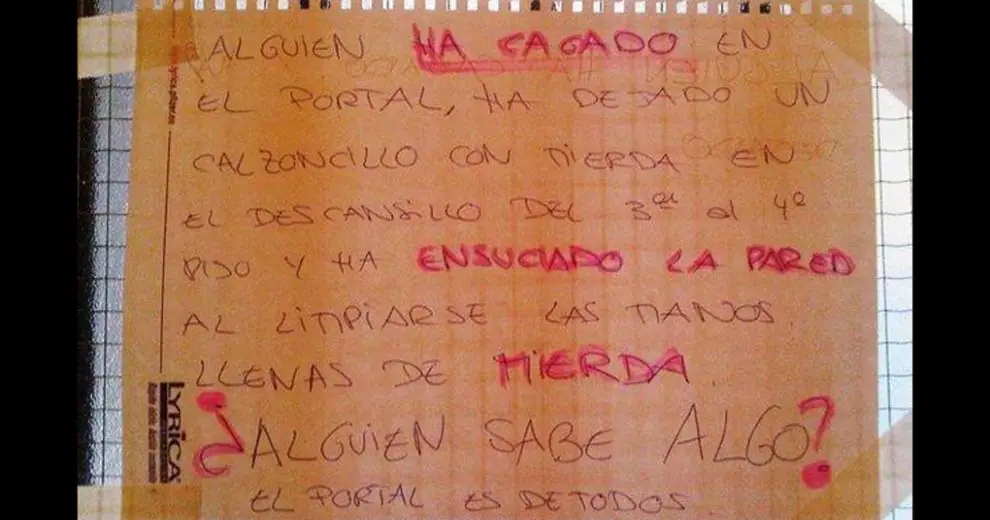 ALGUIEN HA CAGADO EN
EL PORTAL, HA DEJADO UN
CALZONCILLO CON MIERDA EN
EL DESCANSILLO DEL 3er al 4º
PISO Y HA ENSUCIADO LA PARED
AL LIMPIARSE LAS MANOS
LLENAS DE MIERDA.
¿ALGUIEN SABE ALGO?
EL PORTAL ES DE TODOS
LYRICA